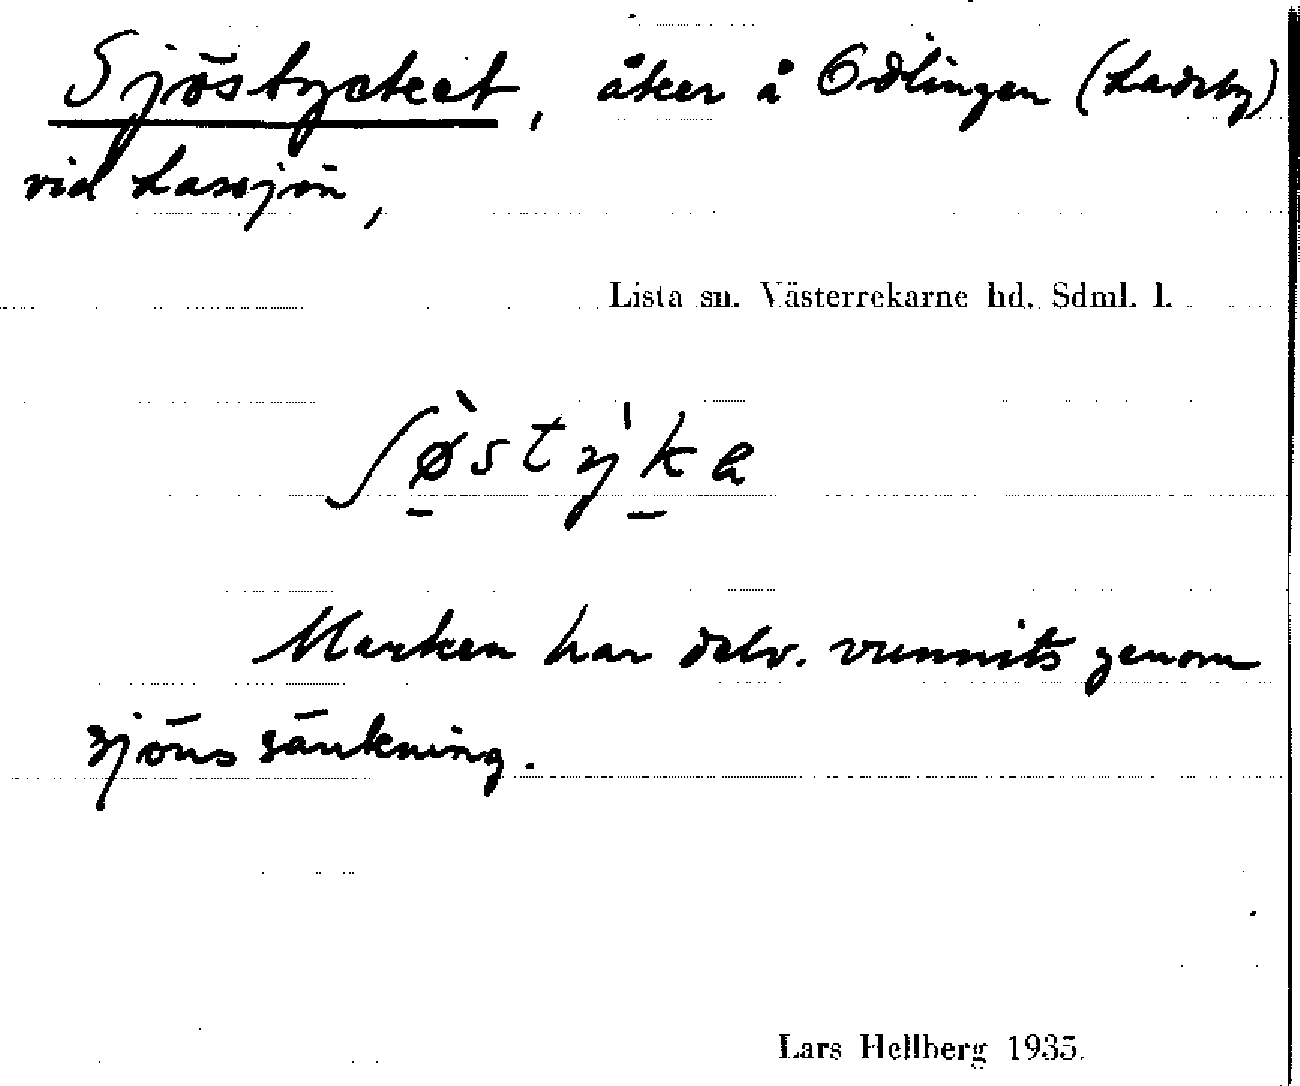 Sjöstycket, åker å Odlingen (Ladsby)
vid Lassjön,
Lista sn. Västerrekarne hd. Sdml. l.
ʃø̀sty̍ka
Marken har delv. vunnits genom
sjöns sänkning.
Lars Hellberg 1935.